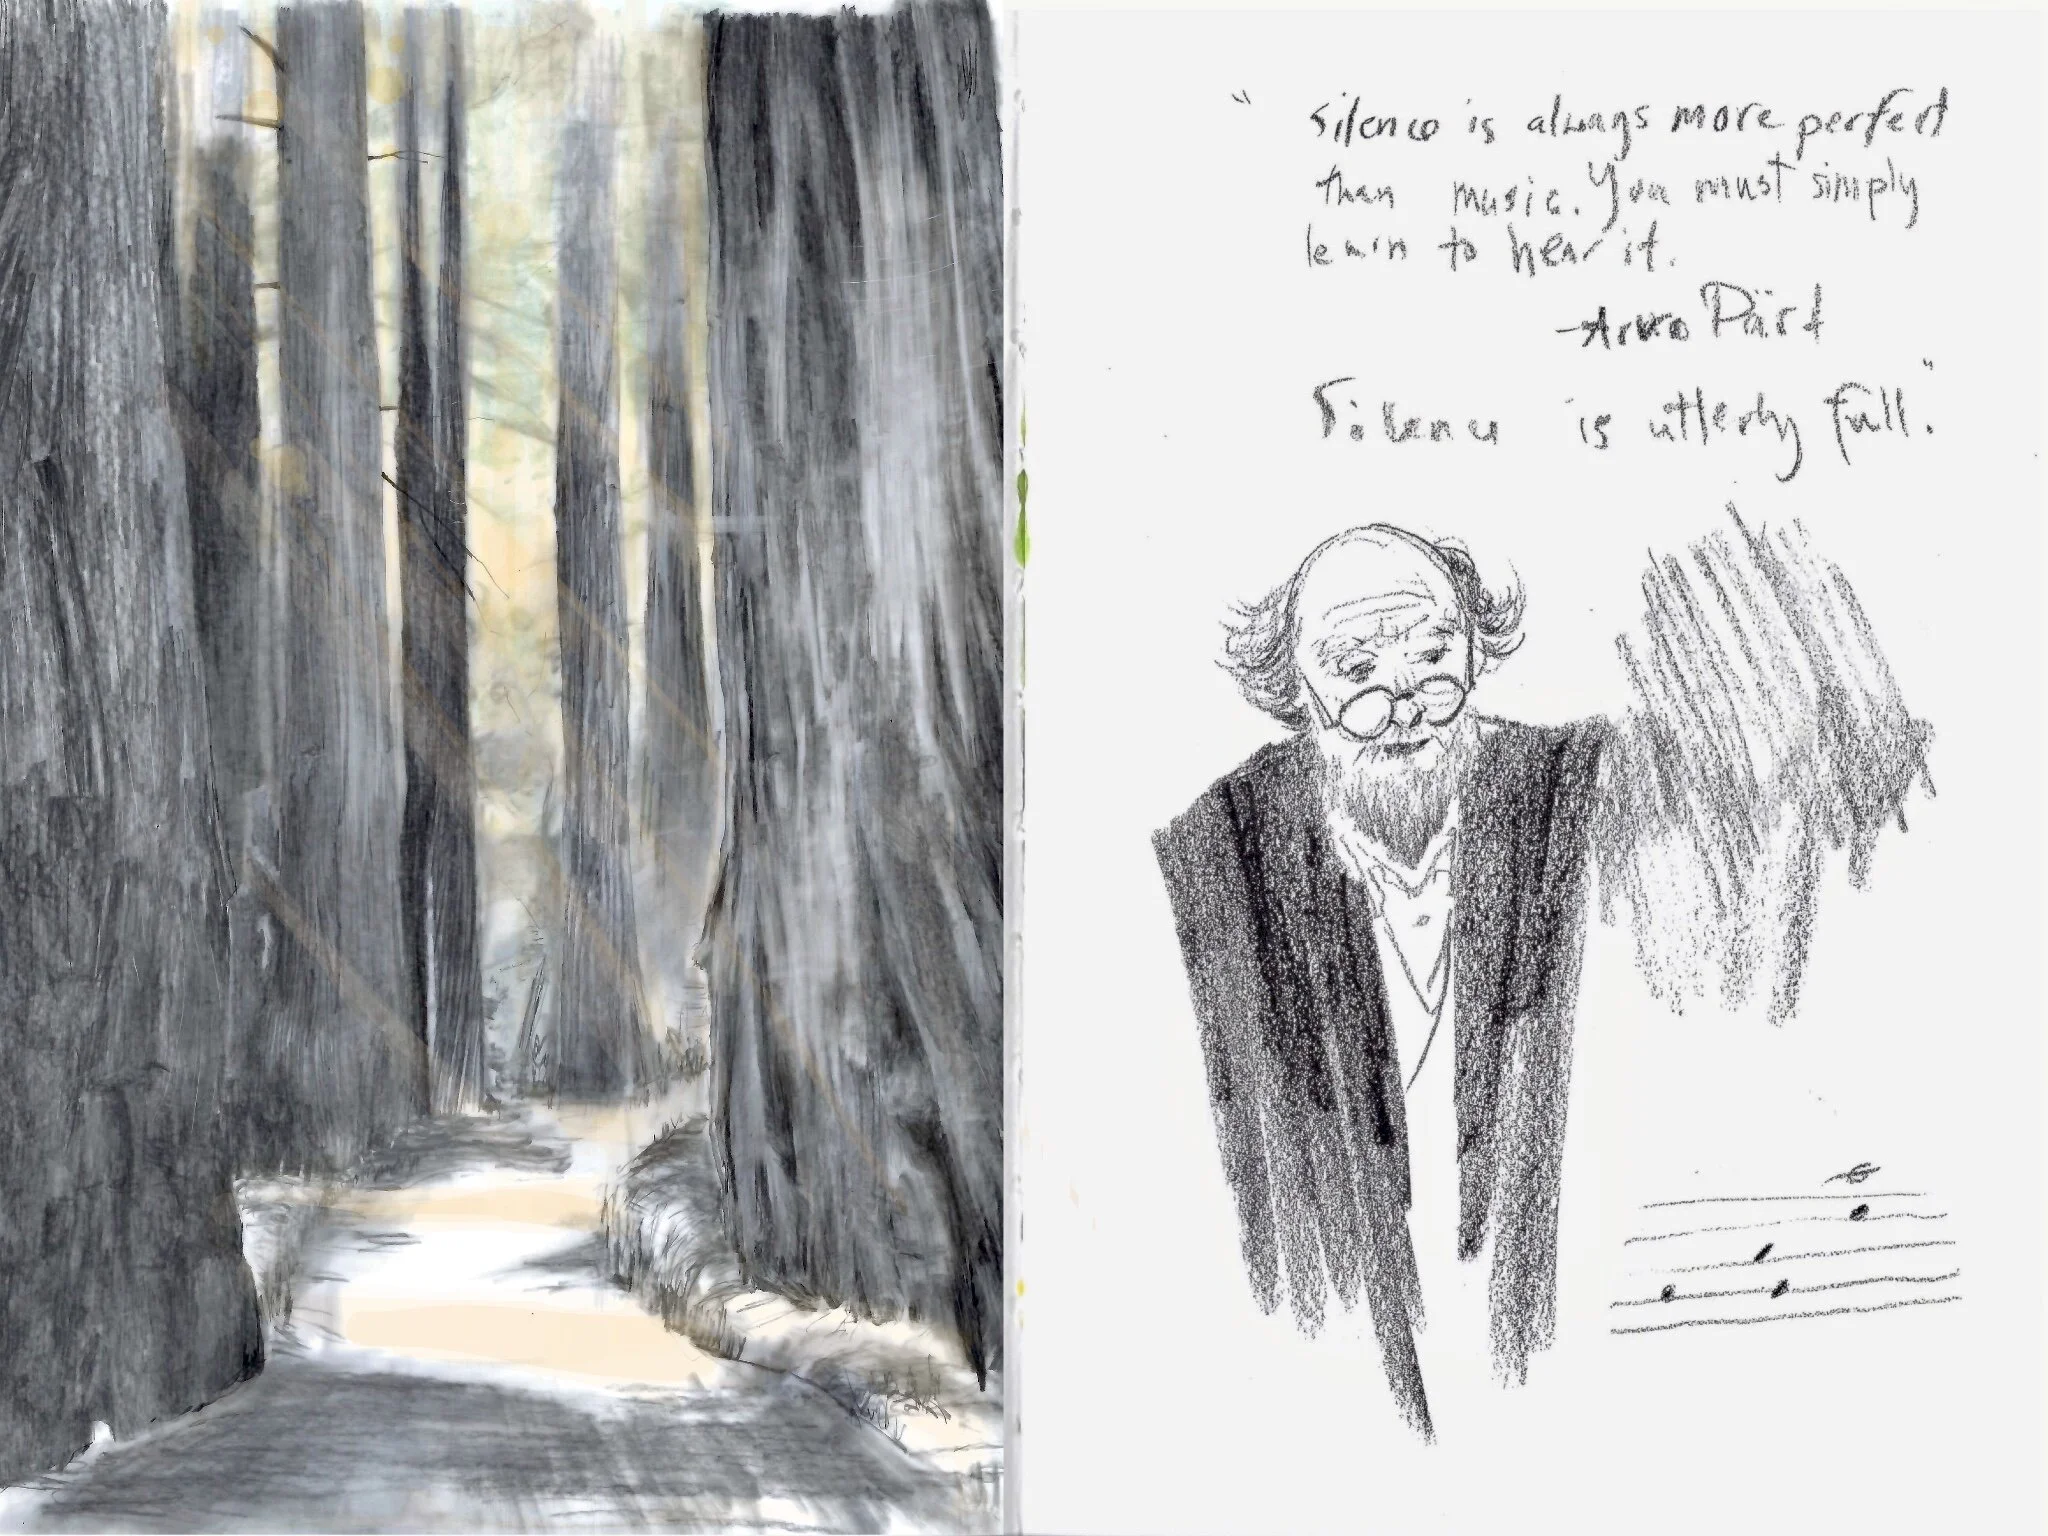 " Silence is always more perfect
than music. You must simply
learn to hear it.
-Arvo Pärt
Silence is utterly full."